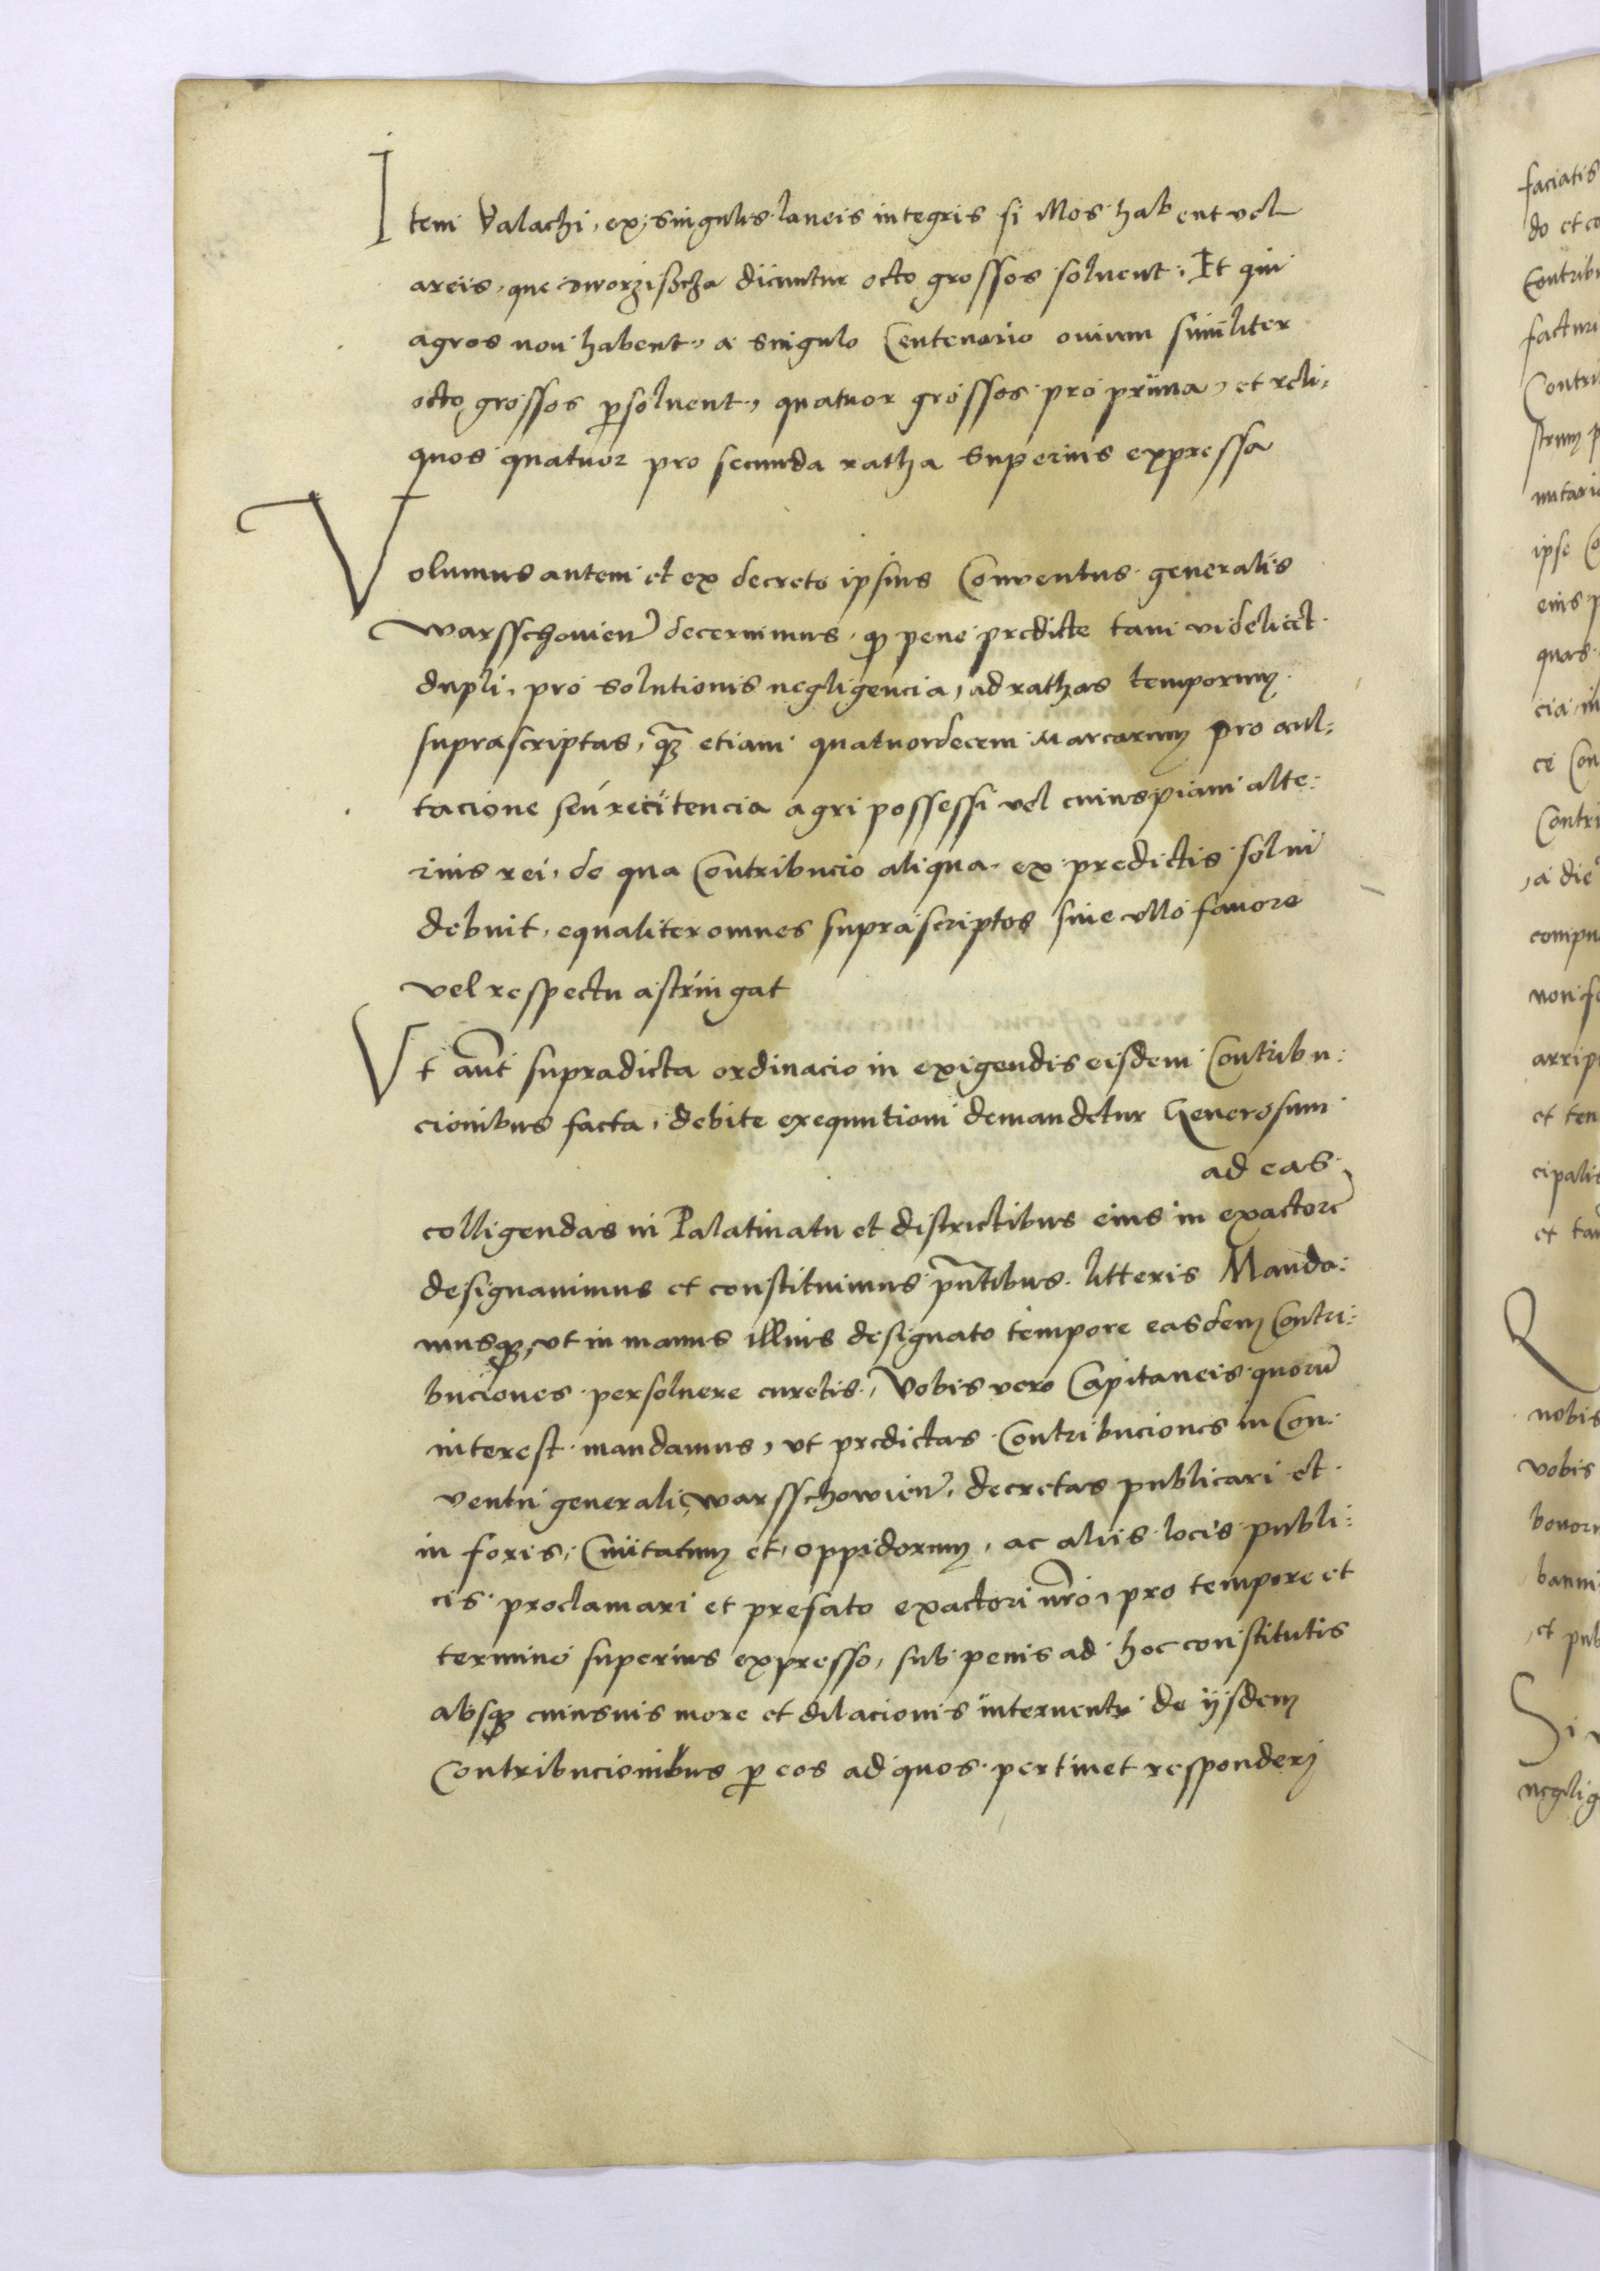 Item Valachi, ex singulis laneis integris si illos habent vel
areis, que dworzisßcza dicuntur octo grossos soluent. Et qui
agros non habent, a singulo Centenario ouium similiter
octo grossos p̱soluent, quatuor grossos pro prima, et reli:
quos quatuor pro secunda ratha superius expressa
Volumus autem et ex decreto ipsius Conuentus generalis
warsschouien̄ decernimus, qđ pene predicte tam videlicet
dupli, pro solutionis negligencia, ad rathas temporum
suprascriptas, q̃ȝ etiam quatuordecem Marcarum pro ocul:
tacione seu reticencia agri possessi vel cuiuspiam alte:
rius rei, de qua Contribucio aliqua ex predictis solui
debuit, equaliter omnes suprascriptos sine vllo fauore
vel respectu astringat
Vt aūt supradicta ordinacio in exigendis eisdem Contribu:
cionibus facta, debite exequutioni demandetur Generosum
ad eas
colligendas in Palatinatu et districtibus eius in exactorē
designauimus et constituimus pñtibus litteris Manda:
musqꝫ, vt in manus illius designato tempore easdem Contri:
buciones persoluere curetis, Vobis vero Capitaneis quorū
interest mandamus, vt predictas Contribuciones in Con:
uentu generali warsschowien̄, decretas publicari et
in foris, Ciuitatum et oppidorum, ac aliis locis publi:
cis proclamari et prefato exactori nr̃o, pro tempore et
termino superius expresso, sub penis ad hoc constitutis
absqꝫ cuiusuis more et dilacionis interuentu de ijsdem
Contribucionibus p̱ eos ad quos pertinet responderj
faciatis
nobis
vobis